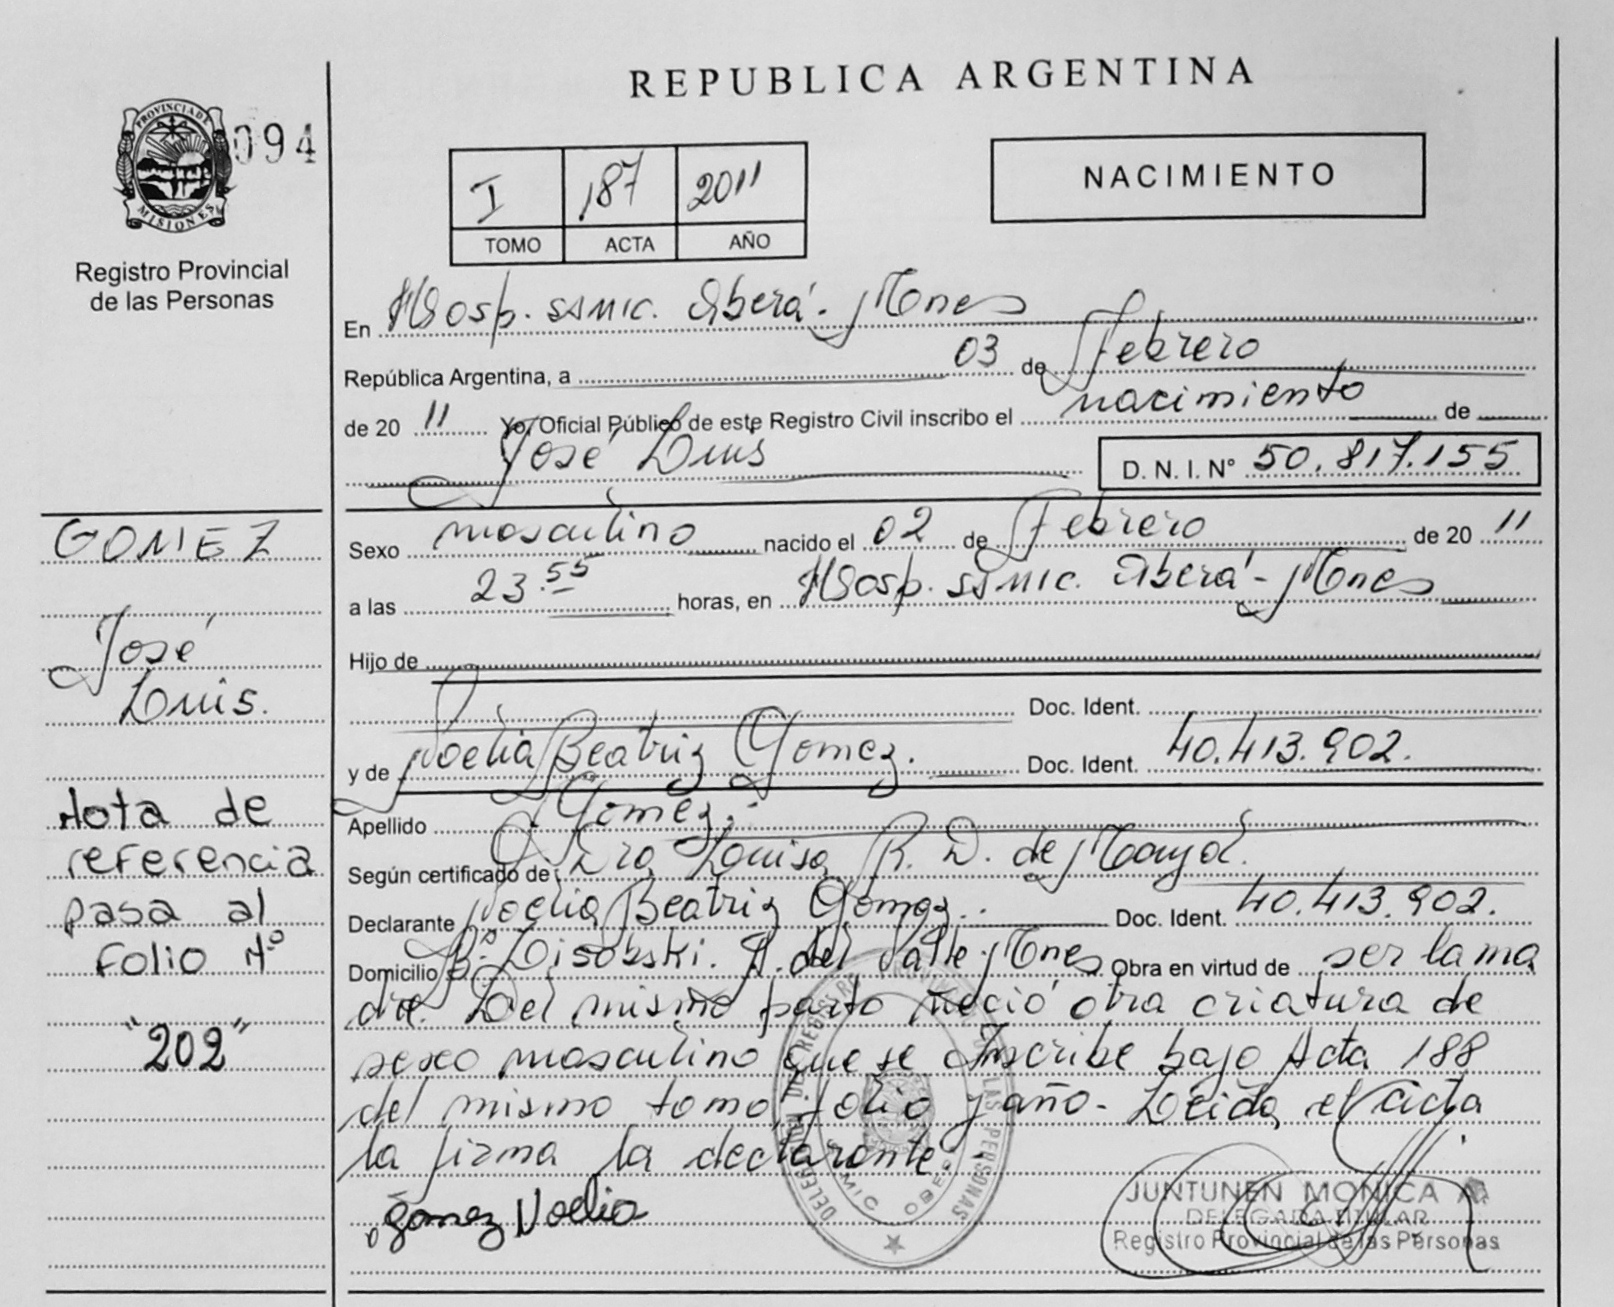 REPUBLICA ARGENTINA
PROVINCIA DE
MISIONES
094
Registro Provincial
de las Personas
I 187 2011
TOMO ACTA AÑO
NACIMIENTO
En Hosp. SAMIC. Oberá - Mnes
República Argentina, a 03 de Febrero
de 20 11 Yo, Oficial Público de este Registro Civil inscribo el nacimiento de
José Luis D. N. I. Nº 50.817.155
GOMEZ
José
Luis.
Nota de
referencia
pasa al
folio Nº
"202"
Sexo masculino nacido el 02 de Febrero de 20 11
a las 23.55 horas, en Hosp. SAMIC. Oberá - Mnes
Hijo de
Doc. Ident.
y de Noelia Beatriz Gomez. Doc. Ident. 40.413.902.
Apellido Gomez.
Según certificado de Dra Louisa R. D. de
Declarante Noelia Beatriz Gomez. Doc. Ident. 40.413.902.
Domicilio Bº. A. del Valle - Mnes Obra en virtud de ser la ma
dre. Del mismo parto nació otra criatura de
sexo masculino que se inscribe bajo Acta 188
del mismo tomo, folio y año - Leída el acta
la firma la declarante.
Gomez Noelia
JUNTUNEN MONICA A.
DELEGADA TITULAR
Registro Provincial de las Personas